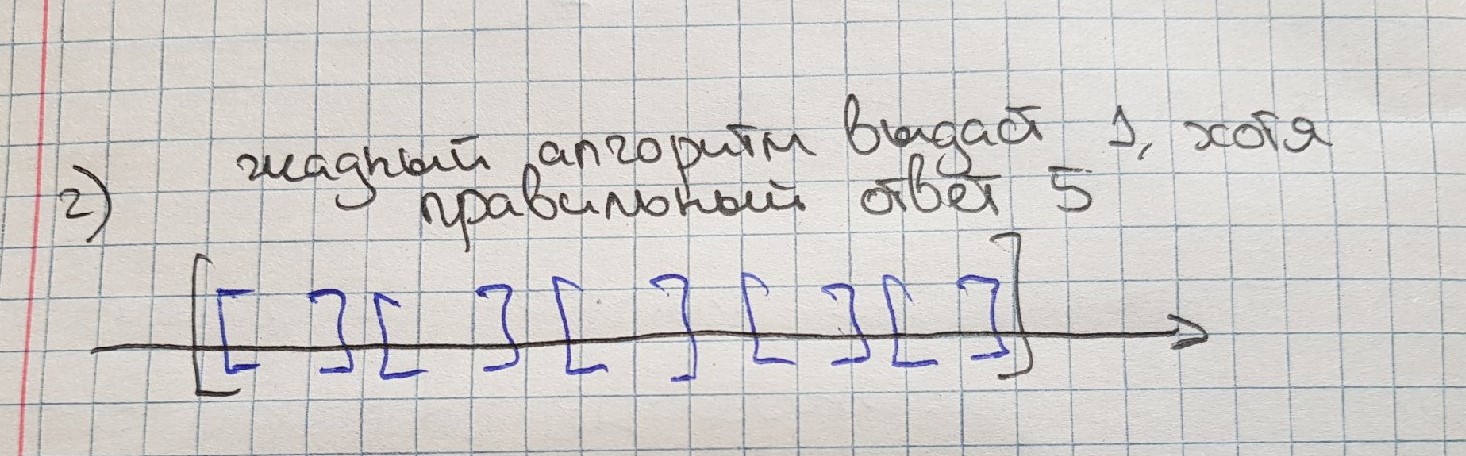 жадный алгоритм выдаст 1, хотя
2) правильный ответ 5
[[ ][ ][ ][ ][ ]]